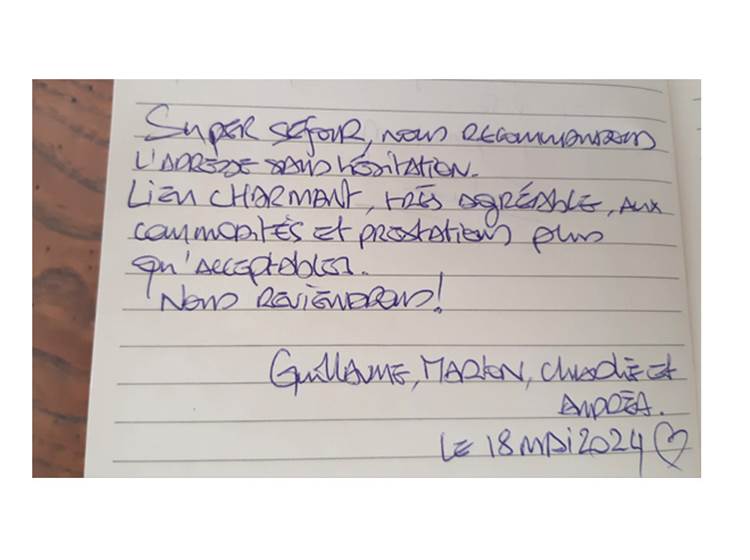 Super séjour, nous recommandons
l'adresse sans hésitation.
Lieu charmant, très agréable, aux
commodités et prestations plus
qu'acceptables.
Nous reviendrons!
Guillaume, Marion, et
Andréa.
Le 18 mai 2024 ♡